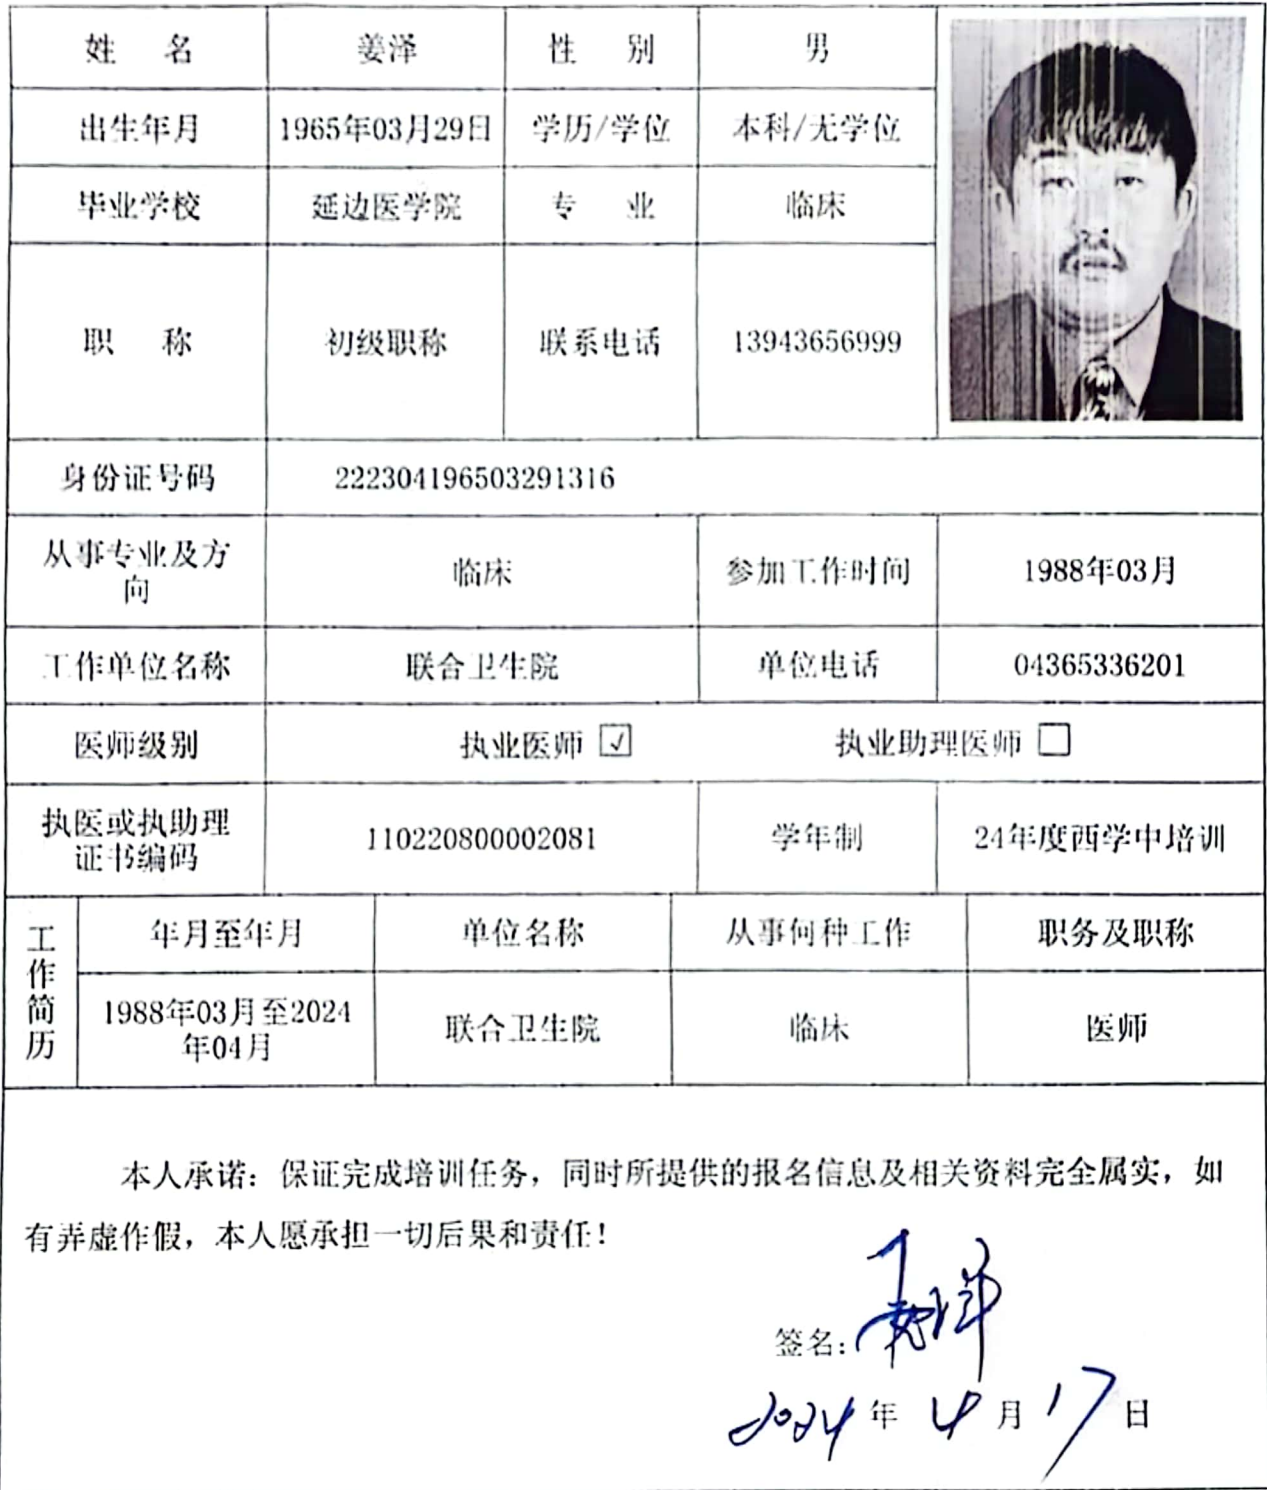 姓 名 姜泽 性 别 男
出生年月 1965年03月29日 学历/学位 本科/无学位
毕业学校 延边医学院 专 业 临床
职 称 初级职称 联系电话 13943656999
身份证号码 222304196503291316
从事专业及方向 临床 参加工作时间 1988年03月
工作单位名称 联合卫生院 单位电话 04365336201
医师级别 执业医师 ☑ 执业助理医师 □
执医或执助理证书编码 110220800002081 学年制 24年度西学中培训
工作简历 年月至年月 单位名称 从事何种工作 职务及职称
1988年03月至2024年04月 联合卫生院 临床 医师
本人承诺：保证完成培训任务，同时所提供的报名信息及相关资料完全属实，如
有弄虚作假，本人愿承担一切后果和责任！
签名：姜泽
2024年4月17日